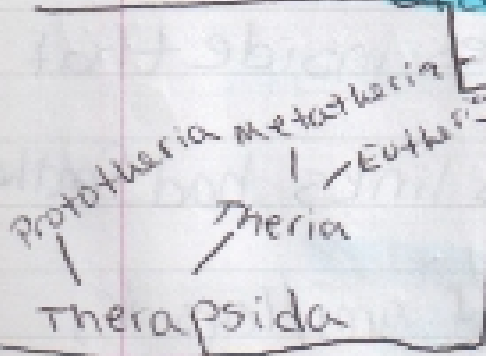 Prototheria Metatheria
Eutheri
Theria
Therapsida